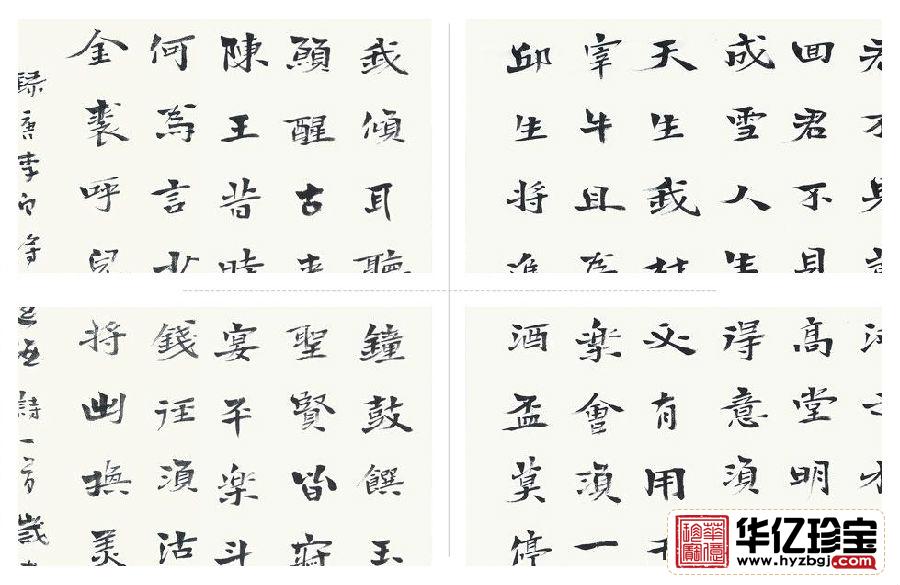 回君不見
成雪人生
天生我材
宰牛且為
邱生將進
我傾耳聽
願醒古來
陳王昔時
何為言少
金裘呼兒
錄唐李白
高堂明
得意須
必有用千
樂會須一
酒盃莫停
鐘鼓饌玉
聖賢皆寂
宴平樂斗
錢徑須沽
將出換美
詩一首歲
華億珍寶
华亿珍宝
www.hyzbgj.com